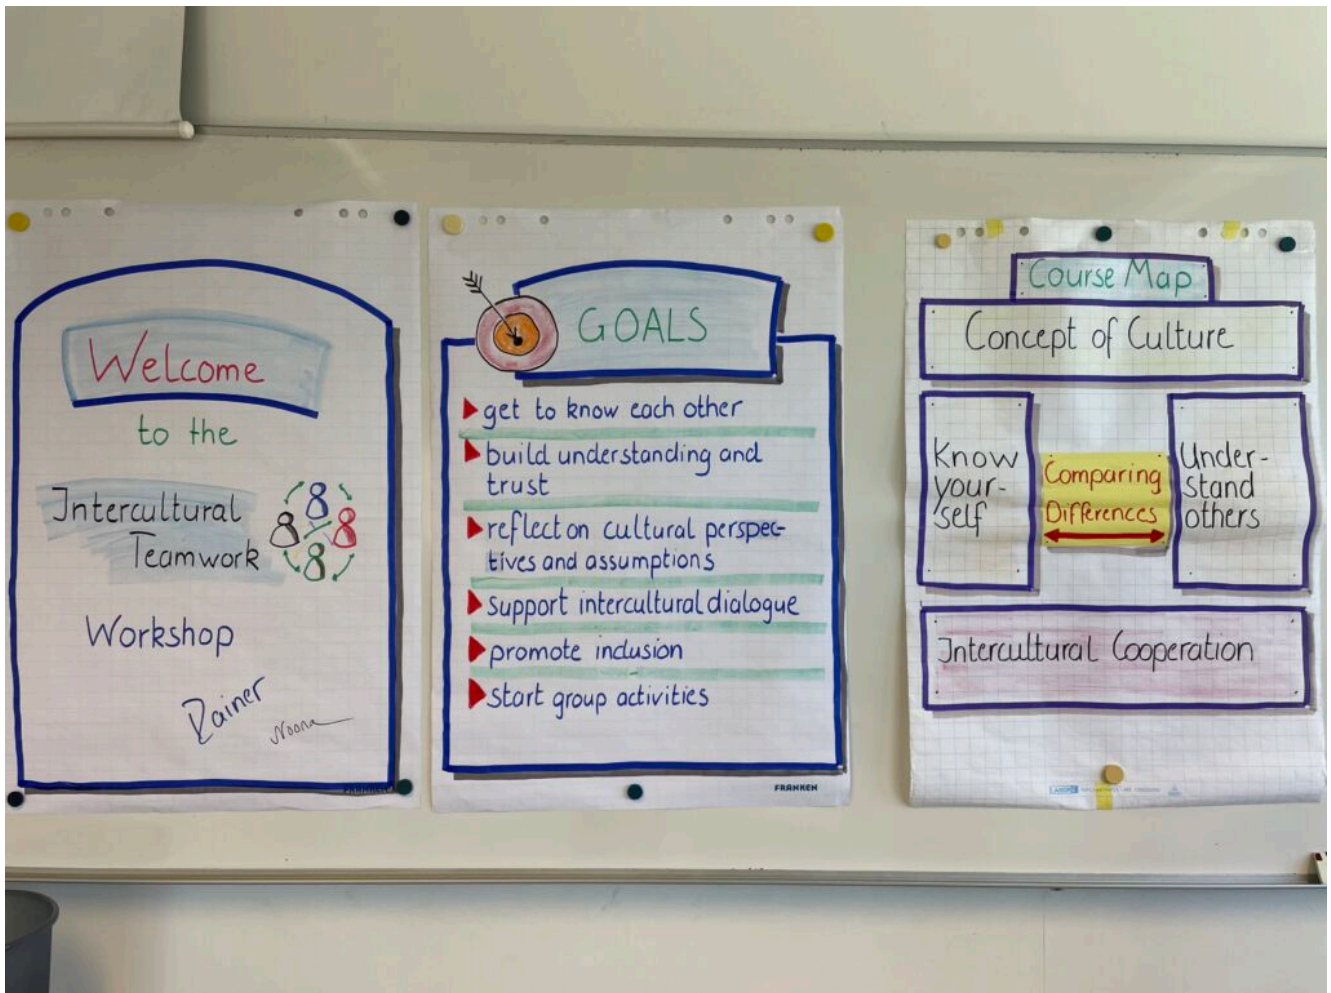 Welcome
to the
Intercultural
Teamwork
Workshop
Rainer
Noona
FRANKEN
GOALS
get to know each other
build understanding and
trust
reflect on cultural perspec-
tives and assumptions
support intercultural dialogue
promote inclusion
start group activities
FRANKEN
Course Map
Concept of Culture
Know
your-
self
Comparing
Differences
Under-
stand
others
Intercultural Cooperation